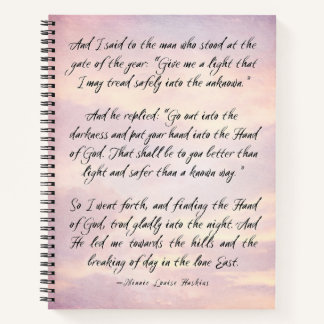 And I said to the man who stood at the
gate of the year: "Give me a light that
I may tread safely into the unknown."
And he replied: "Go out into the
darkness and put your hand into the Hand
of God. That shall be to you better than
light and safer than a known way."
So I went forth, and finding the Hand
of God, trod gladly into the night. And
He led me towards the hills and the
breaking of day in the lone East.
—Minnie Louise Haskins